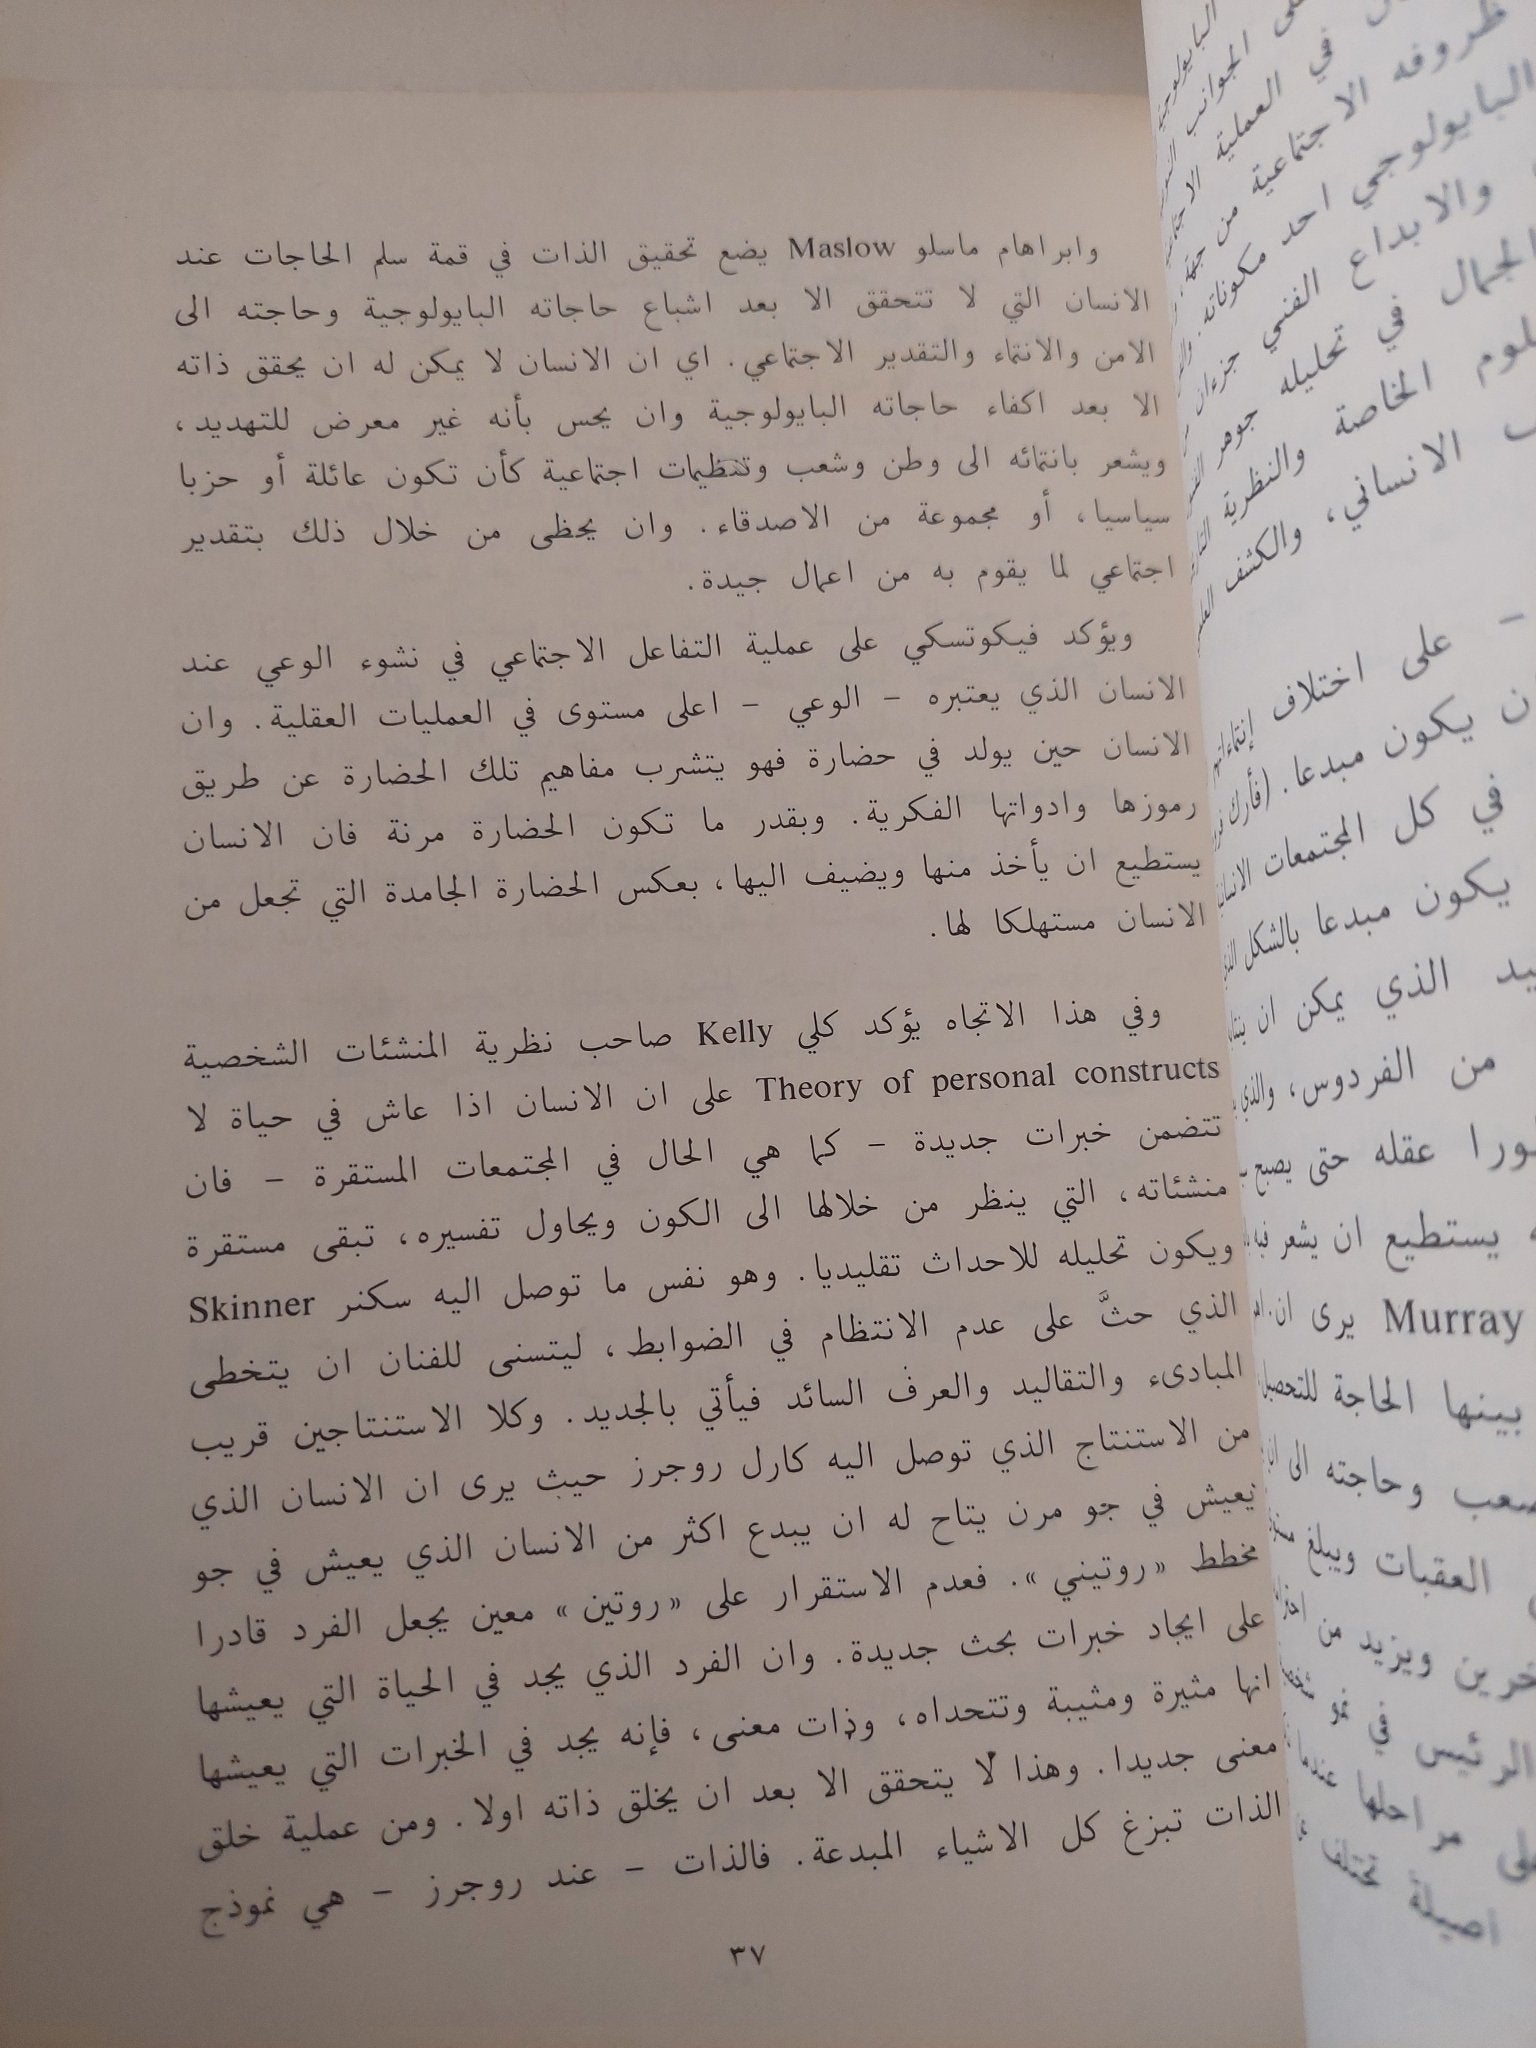 وابراهام ماسلو Maslow يضع تحقيق الذات في قمة سلم الحاجات عند
الانسان التي لا تتحقق الا بعد اشباع حاجاته البايولوجية وحاجته الى
الامن والانتماء والتقدير الاجتماعي. اي ان الانسان لا يمكن له ان يحقق ذاته
الا بعد اكفاء حاجاته البايولوجية وان يحس بأنه غير معرض للتهديد،
ويشعر بانتمائه الى وطن وشعب وتنظيمات اجتماعية كأن تكون عائلة أو حزبا
سياسيا، أو مجموعة من الاصدقاء. وان يحظى من خلال ذلك بتقدير
اجتماعي لما يقوم به من اعمال جيدة.
ويؤكد فيكوتسكي على عملية التفاعل الاجتماعي في نشوء الوعي عند
الانسان الذي يعتبره - الوعي - اعلى مستوى في العمليات العقلية. وان
الانسان حين يولد في حضارة فهو يتشرب مفاهيم تلك الحضارة عن طريق
رموزها وادواتها الفكرية. وبقدر ما تكون الحضارة مرنة فان الانسان
يستطيع ان يأخذ منها ويضيف اليها، بعكس الحضارة الجامدة التي تجعل من
الانسان مستهلكا لها.
وفي هذا الاتجاه يؤكد كلي Kelly صاحب نظرية المنشئات الشخصية
Theory of personal constructs على ان الانسان اذا عاش في حياة لا
تتضمن خبرات جديدة - كما هي الحال في المجتمعات المستقرة - فان
منشئاته، التي ينظر من خلالها الى الكون ويحاول تفسيره، تبقى مستقرة
ويكون تحليله للاحداث تقليديا. وهو نفس ما توصل اليه سكنر Skinner
الذي حثَّ على عدم الانتظام في الضوابط، ليتسنى للفنان ان يتخطى
المبادىء والتقاليد والعرف السائد فيأتي بالجديد. وكلا الاستنتاجين قريب
من الاستنتاج الذي توصل اليه كارل روجرز حيث يرى ان الانسان الذي
يعيش في جو مرن يتاح له ان يبدع اكثر من الانسان الذي يعيش في جو
مخطط «روتيني». فعدم الاستقرار على «روتين» معين يجعل الفرد قادرا
على ايجاد خبرات بحث جديدة. وان الفرد الذي يجد في الحياة التي يعيشها
انها مثيرة ومثيبة وتتحداه، وذات معنى، فإنه يجد في الخبرات التي يعيشها
معنى جديدا. وهذا لا يتحقق الا بعد ان يخلق ذاته اولا. ومن عملية خلق
الذات تبزغ كل الاشياء المبدعة. فالذات - عند روجرز - هي نموذج
٣٧
في العملية
ظروفه الاجتماعية من جهة
البايولوجي احد مكوناته.
والابداع الفني جزءان
الجمال في تحليله جوهر
الخاصة والنظرية
الانساني، والكشف
- على اختلاف إنتماءاتهم
يكون مبدعا.
في كل المجتمعات
يكون مبدعا بالشكل
الذي يمكن ان
من الفردوس، والذي
عقله حتى يصبح
يستطيع ان يشعر فيه
Murray يرى ان
بينها الحاجة للتحصيل
وحاجته الى
العقبات ويبلغ
ويزيد من
الرئيس في نمو
مراحلها عندما
اصيلة تختلف